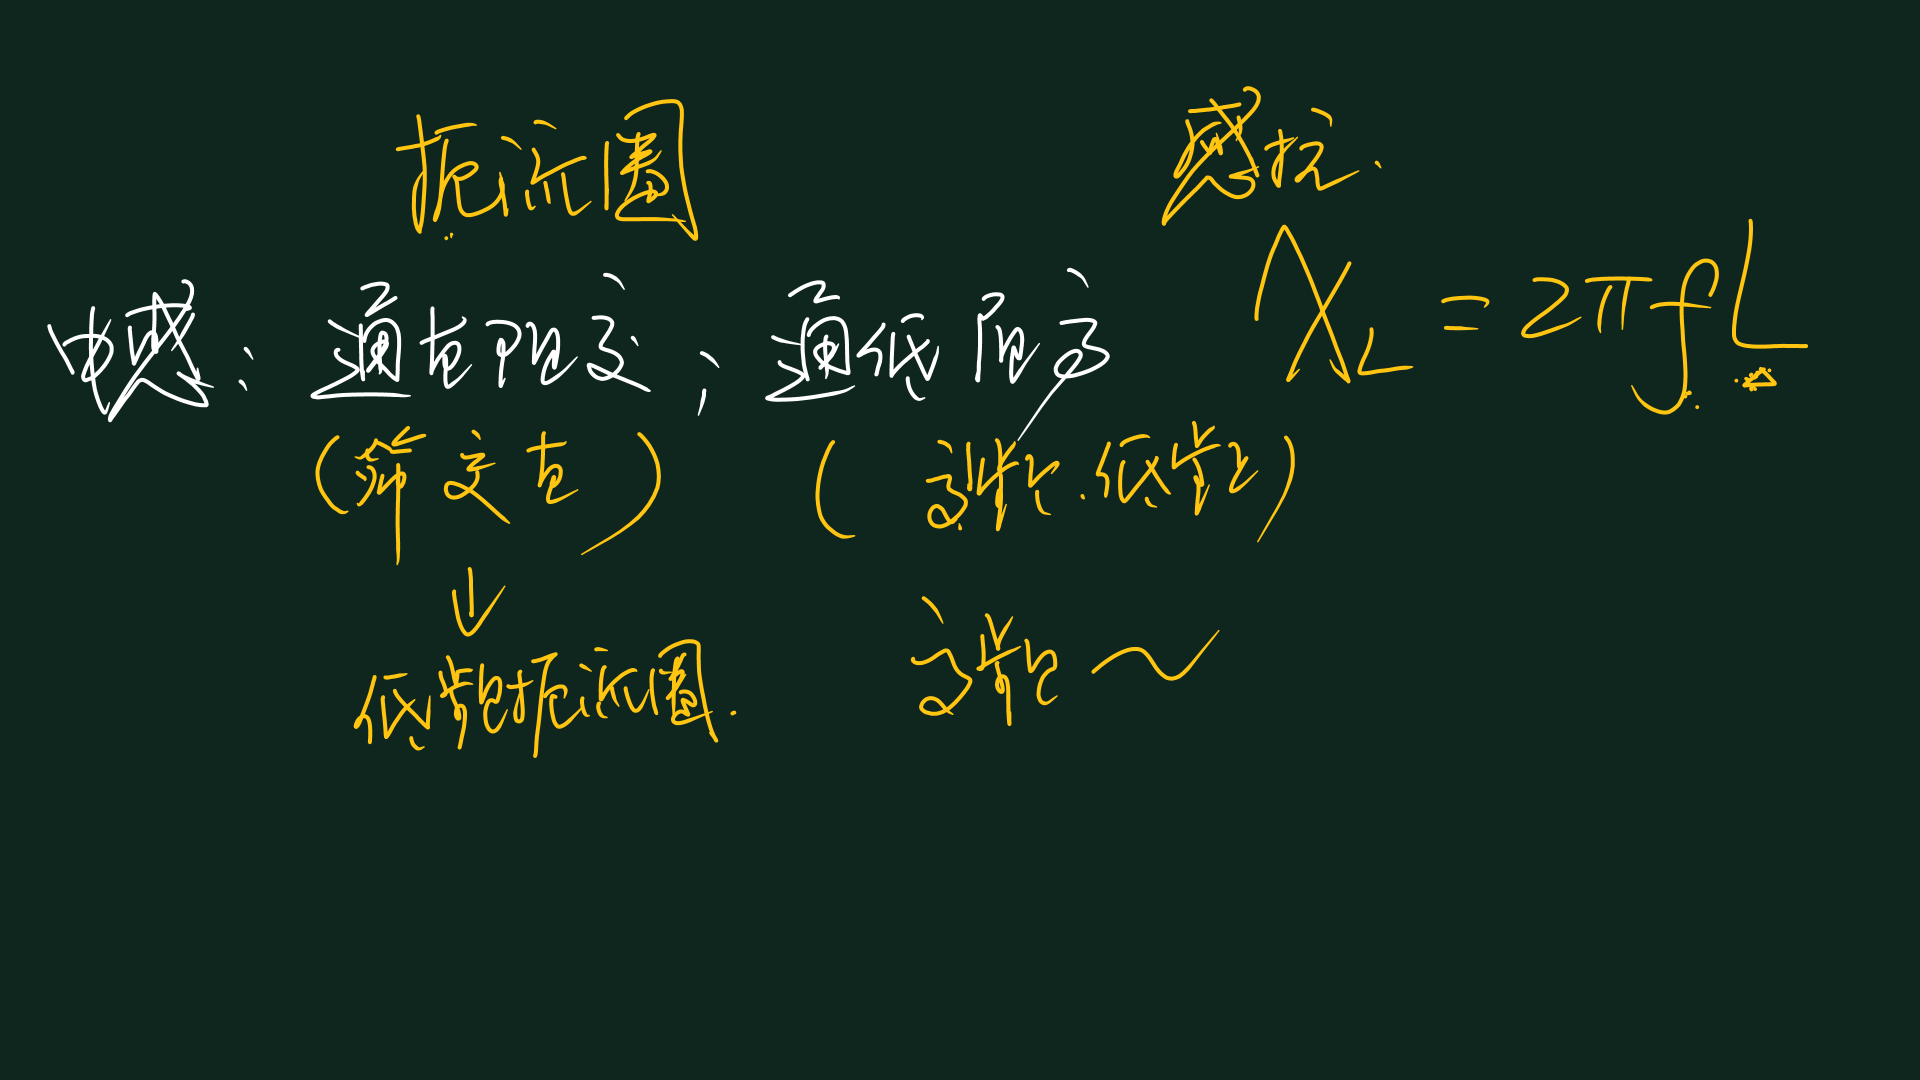 扼流圈
感抗.
X_L = 2πfL
电感: 通直阻交; 通低阻高
(筛交直) (高频.低频)
↓
低频扼流圈. 高频~